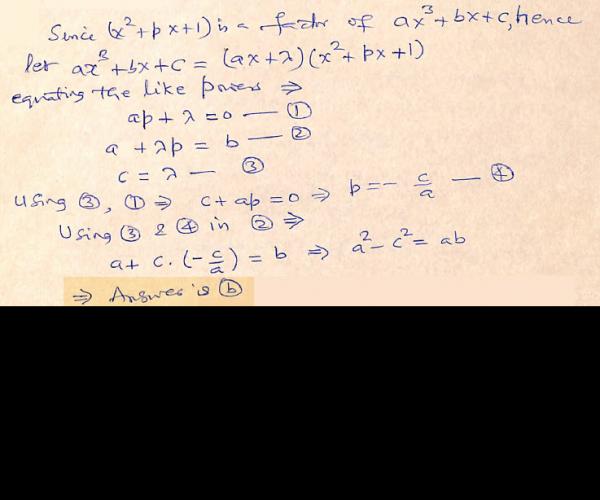 Since (x²+px+1) is a factor of ax³+bx+c, hence
let ax³+bx+c = (ax+λ)(x²+px+1)
equating the like powers ⇒
ap+λ=0 — ①
a+λp = b — ②
c=λ — ③
Using ③, ① ⇒ c+ap=0 ⇒ p=-c/a — ④
Using ③ & ④ in ② ⇒
a+ c.(-c/a) = b ⇒ a²-c²= ab
⇒ Answer is ⓑ